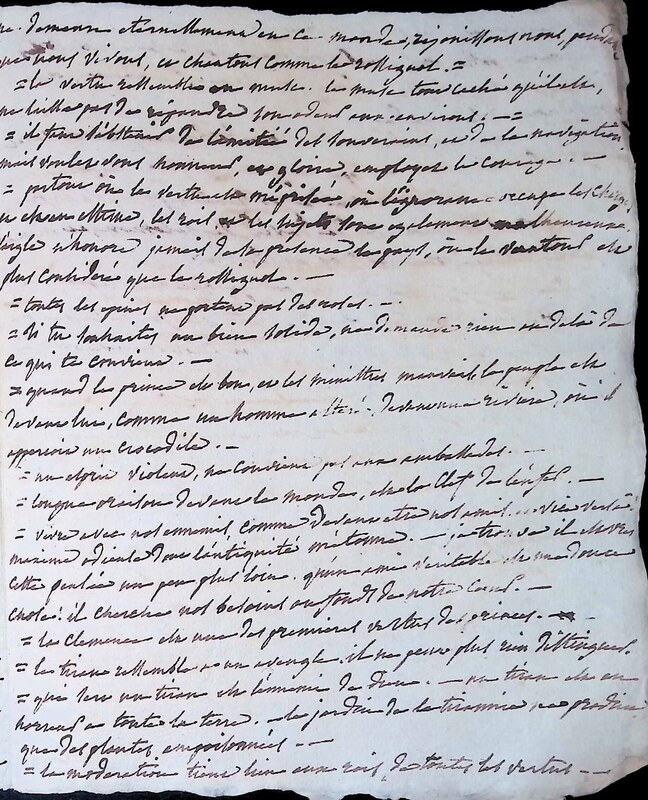 ne demeure eternellement en ce monde, rejouissons nous, pendant
que nous vivons, et chantons comme le rossignol. =
= la vertu ressemble au musc. le musc tout caché qu'il est,
ne laisse pas de répandre son odeur aux environs. - =
= il faut s'abstenir de l'amitié des souverains, et de la navigation,
mais voulez vous honneurs, et gloire, employez le courage. -
= partout où la vertu est méprisée, où l'ignorance occupe les charges
et est en estime, les rois, et les sujets sont egalement malheureux.
l'aigle n'honore jamais de sa presence le pays, où le vautour est
plus consideré que le rossignol. -
= toutes les epines ne portent pas des roses. -
= si tu souhaites un bien solide, ne demande rien au delà de
ce qui te convient. -
= quand le prince est bon, et les ministres mauvais, le peuple est
devant lui, comme un homme alteré, devant une riviere, où il
apperçoit un crocodile. -
= un esprit violent, ne convient pas aux ambassades. -
= longue oraison devant le monde, est la clef de l'enfer. -
= vivre avec nos ennemis, comme devant etre nos amis
maxime odieuse dont l'antiquité m'etonne. - je trouve
cette pensée un peu plus loin. qu'un ami veritable est une douce
chose! il cherche nos besoins au fond de notre coeur. -
= la clemence est une des premieres vertus des princes. -
= le tiran ressemble a un aveugle, il ne peut plus rien distinguer.
= qui sert un tiran est l'ennemi de dieu. - un tiran est en
horreur a toute la terre. - le jardin de la tirannie ne produit
que des plantes empoisonnées. -
= la moderation tient lieu aux rois, de toutes les vertus -